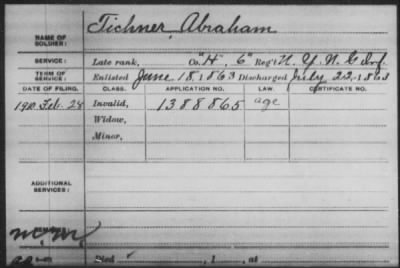 NAME OF SOLDIER: Tichner, Abraham
SERVICE: Late rank, Co. "H", 6" Reg't N. Y. N. G. Inf.
TERM OF SERVICE: Enlisted June 18, 1863 Discharged July 22, 1863
DATE OF FILING. CLASS. APPLICATION NO. LAW. CERTIFICATE NO.
1910 Feb. 28 Invalid, 1388865 age
Widow,
Minor,
ADDITIONAL SERVICES:
Died , 1 , at